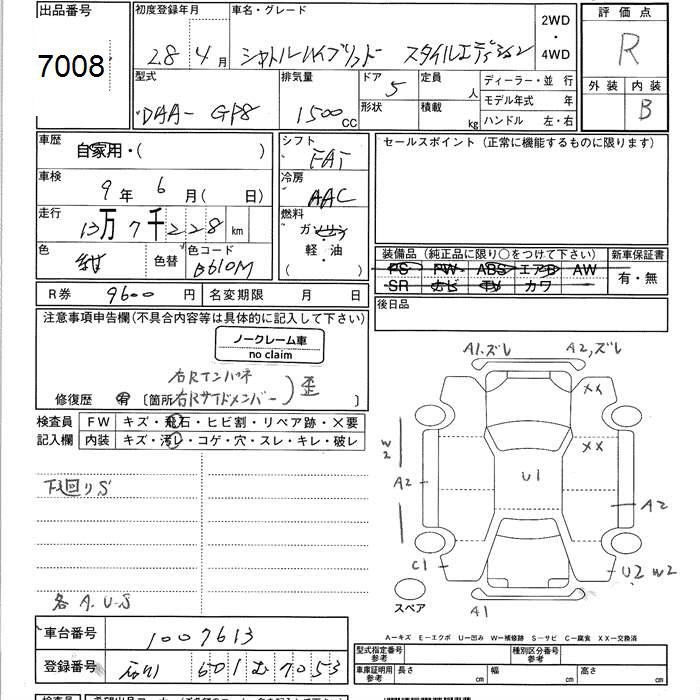 出品番号
7008
初度登録年月
28 4月
車名・グレード
シャトルハイブリッド スタイルエディション
2WD
・
4WD
評価点
R
外装
内装
B
型式
DAA- GP8
排気量
1500 CC
ドア
5
形状
定員
人
積載
kg
ディーラー・並 行
モデル年式 年
ハンドル 左・右
車歴
自家用・( )
シフト
FAT
セールスポイント (正常に機能するものに限ります)
車検
9年 6月( 日)
冷房
AAC
走行
13万7千228 km
燃料
ガソリン
軽・油
( )
色
紺
色替
色コード
B610M
装備品 (純正品に限り○をつけて下さい)
PS PW ABS エアB AW
SR ナビ TV カワ
新車保証書
有・無
R券 9600円
名変期限 月 日
後日品
注意事項申告欄(不具合内容等は具体的に記入して下さい)
ノークレーム車
no claim
右Rインパネ
修復歴 有 〔箇所 右Rサイドメンバー〕 歪
検査員
記入欄
FW キズ・飛石・ヒビ割・リペア跡・×要
内装 キズ・汚レ・コゲ・穴・スレ・キレ・破レ
下廻りS
各A.U.S
A1.ズレ
A2,ズレ
XX
XX
W2
U1
A2
A2
C1
U2 W2
A1
スペア
A－キズ E－エクボ U－凹み W－補修跡 S－サビ C－腐食 XX－交換済
車台番号
1007613
登録番号
601 む 7053
型式指定番号
参考
種別区分番号
参考
車庫証明用
参考
長さ cm
幅 cm
高さ cm
検査員